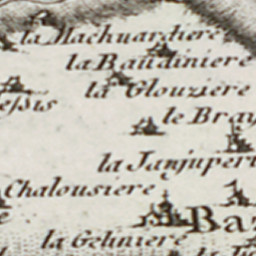 la Machuardiere
la Baudiniere
la Glouziere
essis
le Bray
la Janjuperi
Chalousiere
Ba
la Geliniere